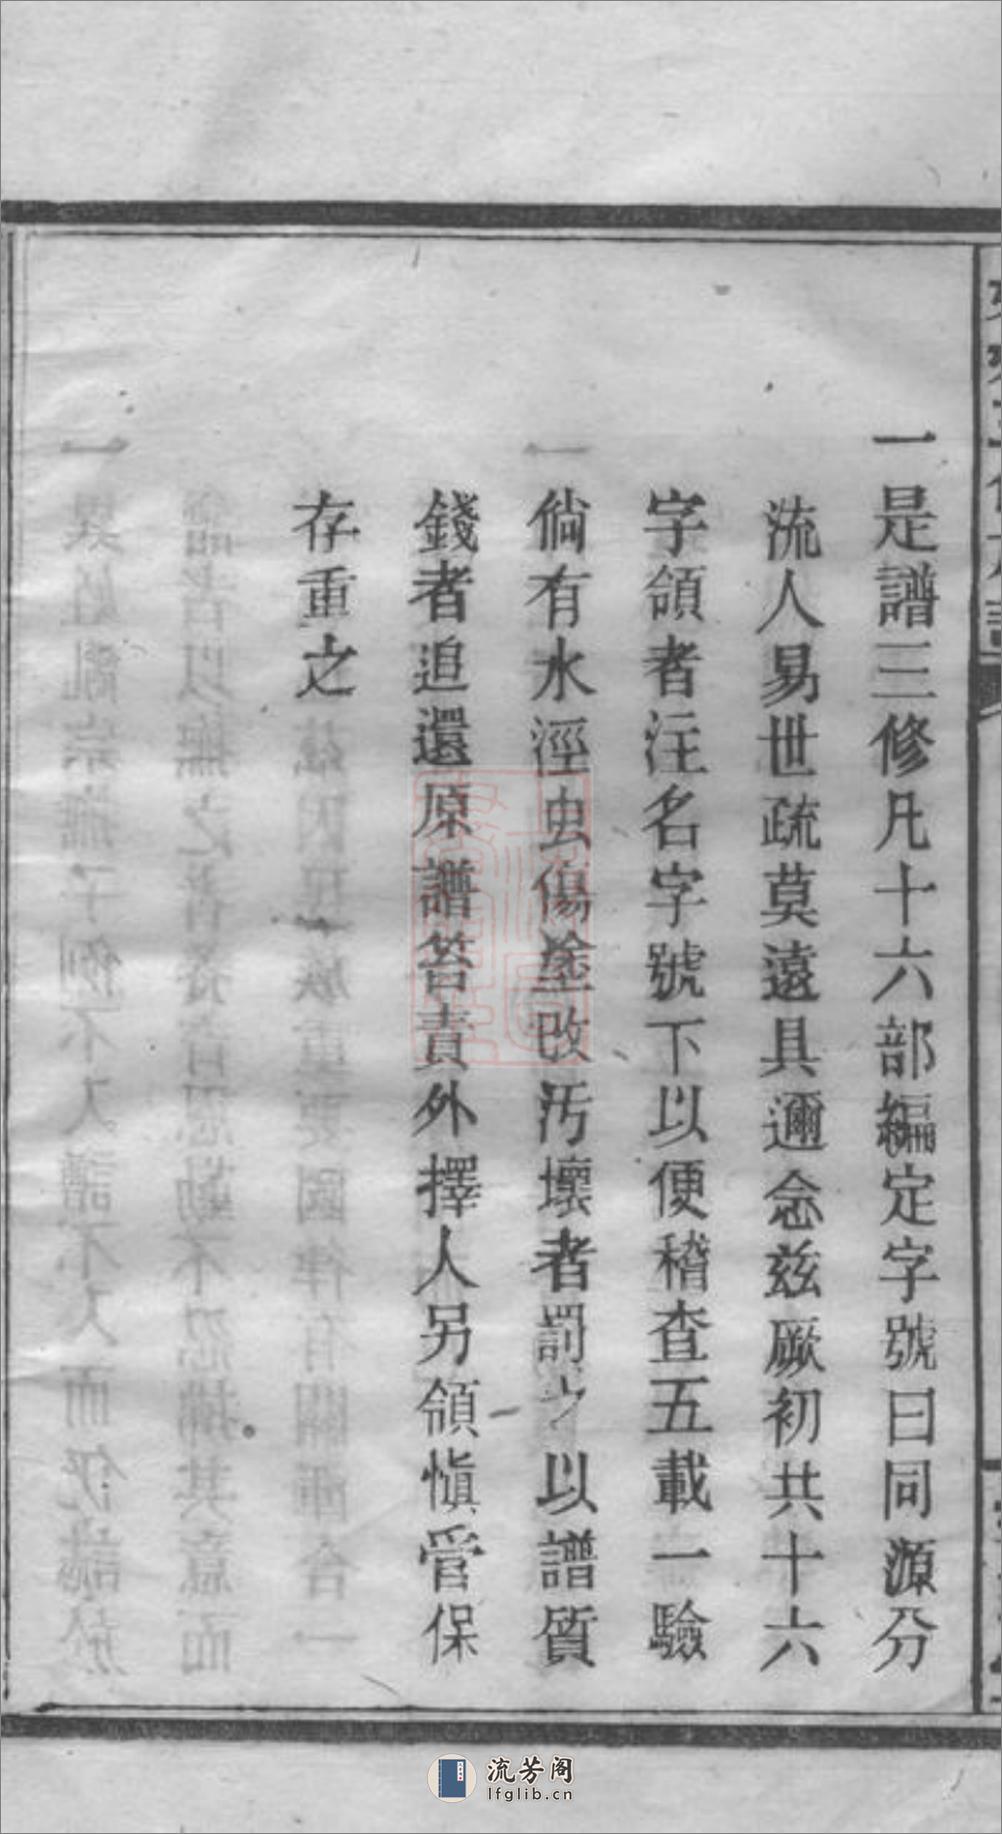 一是譜三修凡十六部編定字號曰同源分
流人易世疏莫遠具邇念茲厥初共十六
字領者注名字號下以便稽查五載一驗
倘有水湮虫傷塗改汚壞者罰之以譜質
錢者追還原譜笞責外擇人另領愼管保
存重之
流芳阁
lfglib.cn